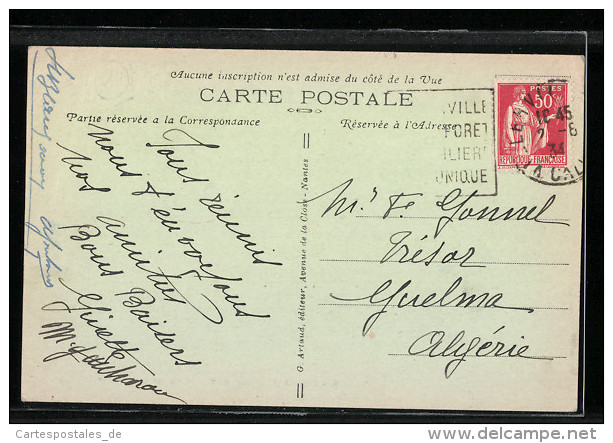 Aucune inscription n'est admise du côté de la Vue
CARTE POSTALE
Partie réservée à la Correspondance
Réservée à l'Adresse
VILLE
FORET
LIER
UNIQUE
50c
16 45
2 - 6
34
POSTES
REPUBLIQUE FRANÇAISE
Tous réunis
nous t'envoyons
nos amitiés
Bons Baisers
Ginette
Mr F. Gonnel
Trésor
Guelma
Algérie
G. Artaud, éditeur, Avenue de la Close - Nantes
Cartespostales_de
www.delcampe.net